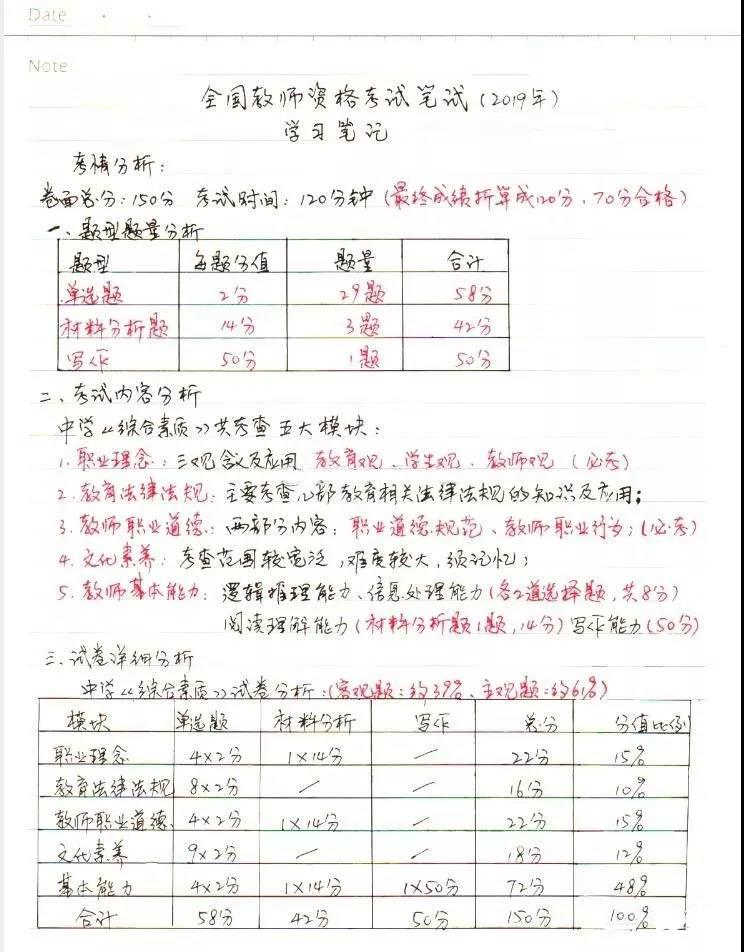 Date
Note
全国教师资格考试笔试(2019年)
学习笔记
考情分析：
卷面总分：150分 考试时间：120分钟(最终成绩折算成120分，70分合格)
一、题型题量分析
题型 每题分值 题量 合计
单选题 2分 29题 58分
材料分析题 14分 3题 42分
写作 50分 1题 50分
二、考试内容分析
中学《综合素质》共考查五大模块：
1.职业理念：三观含义及应用 教育观、学生观、教师观 (必考)
2.教育法律法规：主要考查八部教育相关法律法规的知识及应用；
3.教师职业道德：两部分内容：职业道德规范、教师职业行为；(必考)
4.文化素养：考查范围较宽泛，难度较大，须记忆；
5.教师基本能力：逻辑推理能力、信息处理能力(各2道选择题，共8分)
阅读理解能力(材料分析题1题，14分)写作能力(50分)
三.试卷详细分析
中学《综合素质》试卷分析：(客观题：约39%、主观题：约61%)
模块 单选题 材料分析 写作 总分 分值比例
职业理念 4×2分 1×14分 / 22分 15%
教育法律法规 8×2分 / / 16分 10%
教师职业道德 4×2分 1×14分 / 22分 15%
文化素养 9×2分 / / 18分 12%
基本能力 4×2分 1×14分 1×50分 72分 48%
合计 58分 42分 50分 150分 100%